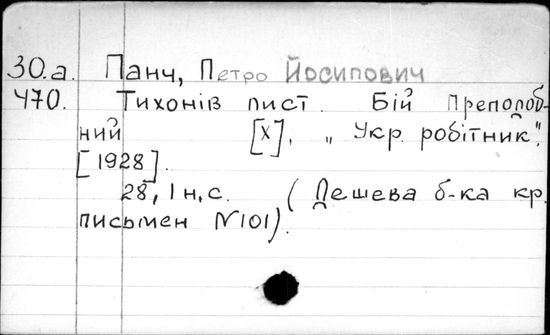 30.а. Панч, Петро Йосипович
470. Тихонів лист. Бій Преподоб-
ний [Х], „Укр. робітник",
[1928].
28, 1 н.с. (Дешева б-ка кр.
письмен №101).